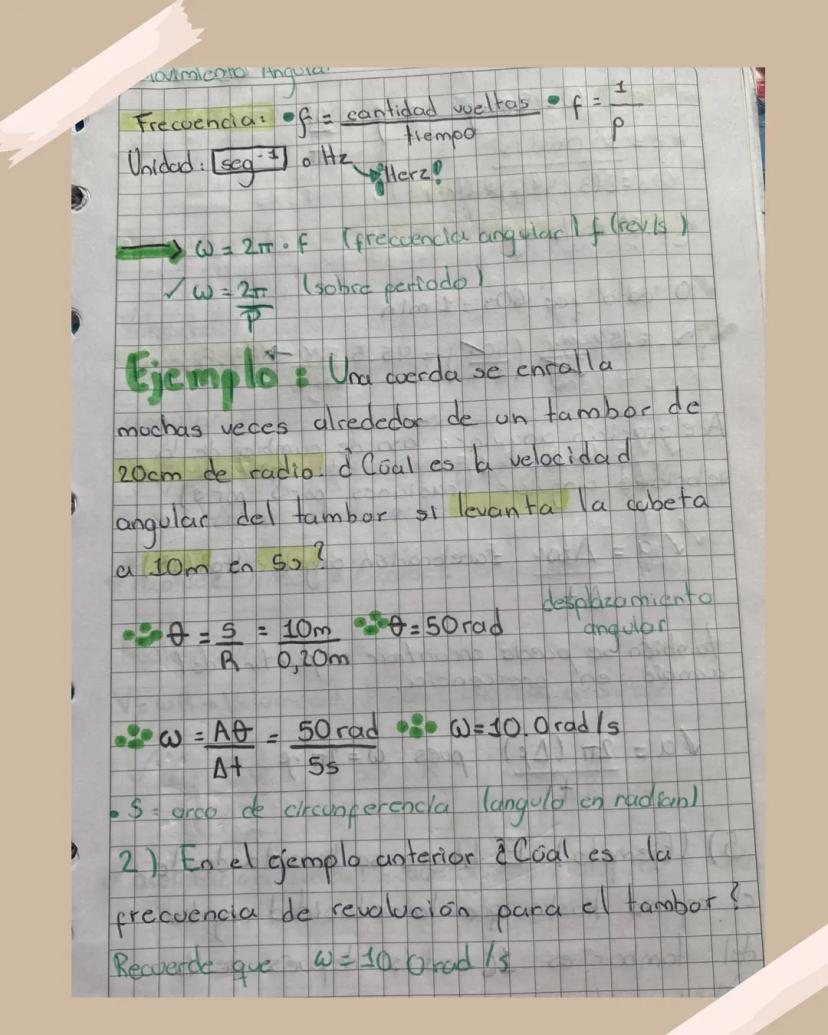 Movimiento Angular
Frecuencia: • f = cantidad vueltas / tiempo • f = 1 / P
Unidad: seg⁻¹ o Hz
¡Herz!
ω = 2π · f (frecuencia angular) f (rev/s)
✓ ω = 2π / P (sobre periodo)
Ejemplo: Una cuerda se enralla
muchas veces alrededor de un tambor de
20cm de radio. ¿Cúal es la velocidad
angular del tambor si levanta la cubeta
a 10m en 5s?
θ = S / R = 10m / 0,20m ∴ θ = 50 rad
desplazamiento
angular
ω = Δθ / Δt = 50 rad / 5s ω = 10.0 rad/s
• S = arco de circunferencia (angulo en radian)
2) En el ejemplo anterior ¿Cúal es la
frecuencia de revolución para el tambor?
Recuerde que ω = 10.0 rad/s